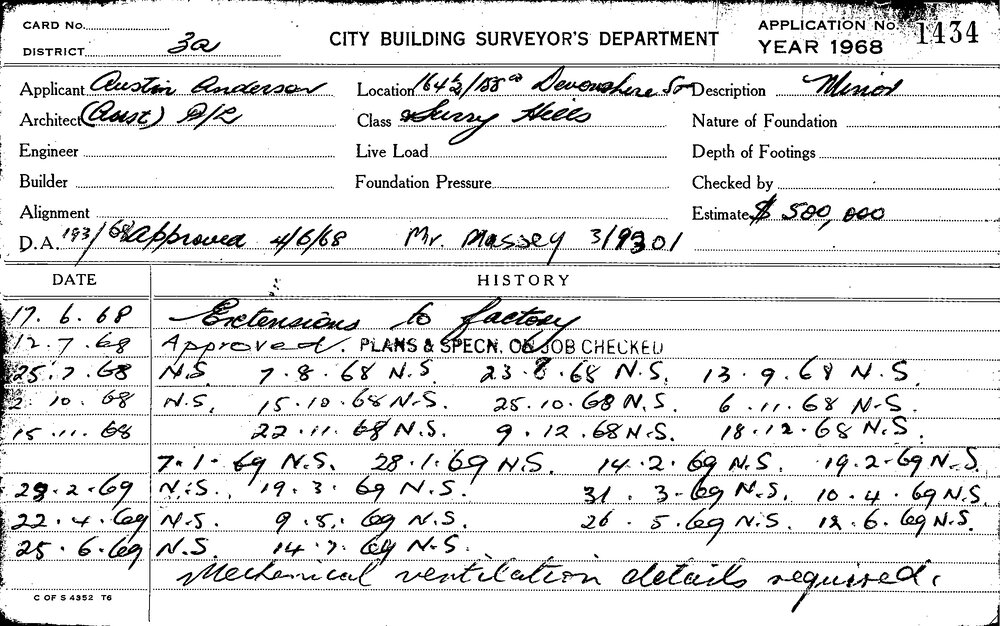 CARD No. APPLICATION No. 1434
DISTRICT 3a CITY BUILDING SURVEYOR'S DEPARTMENT YEAR 1968
Applicant Austin Anderson Location Devonshire Description Minor
Architect (Aust) P/L Class Surry Hills Nature of Foundation
Engineer Live Load Depth of Footings
Builder Foundation Pressure Checked by
Alignment Estimate $ 500,000
D.A. 193/68 Approved 4/6/68 Mr. Massey
DATE HISTORY
17. 6. 68 Extensions to factory
12. 7. 68 Approved. PLANS & SPECN. ON JOB CHECKED
25. 7. 68 N.S. 7. 8. 68 N.S. 23. 8. 68 N.S. 13. 9. 68 N.S.
2. 10. 68 N.S. 15. 10. 68 N.S. 25. 10. 68 N.S. 6. 11. 68 N.S.
15. 11. 68 22. 11. 68 N.S. 9. 12. 68 N.S. 18. 12. 68 N.S.
7. 1. 69 N.S. 28. 1. 69 N.S. 14. 2. 69 N.S. 19. 2. 69 N.S.
2. 69 N.S. 19. 3. 69 N.S. 31. 3. 69 N.S. 10. 4. 69 N.S.
22. 4. 69 N.S. 9. 5. 69 N.S. 26. 5. 69 N.S. 12. 6. 69 N.S.
25. 6. 69 N.S. 14. 7. 69 N.S.
Mechanical ventilation details required.
C OF S 4352 T6